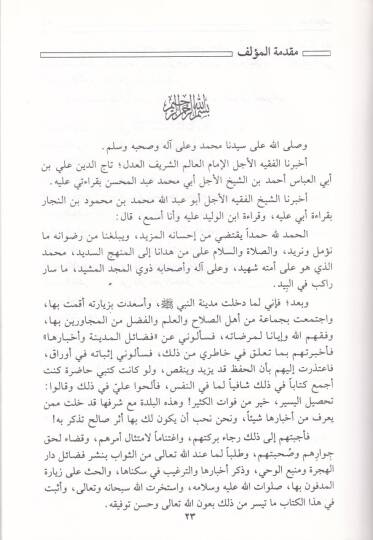 مقدمة المؤلف
بسم الله الرحمن الرحيم
وصلى الله على سيدنا محمد وعلى آله وصحبه وسلم.
أخبرنا الفقيه الأجل الإمام العالم الشريف العدل؛ تاج الدين علي بن
أبي العباس أحمد بن الشيخ الأجل أبي محمد عبد المحسن بقراءتي عليه.
أخبرنا الشيخ الفقيه الأجل أبو عبد الله محمد بن محمود بن النجار
بقراءة أبي عليه، وقراءة ابن الوليد عليه وأنا أسمع، قال:
الحمد لله حمداً يقتضي من إحسانه المزيد، ويبلغنا من رضوانه ما
نؤمل ونريد، والصلاة والسلام على من هدانا إلى المنهج السديد، محمد
الذي هو على أمته شهيد، وعلى آله وأصحابه ذوي المجد المشيد، ما سار
راكب في البيد.
وبعد؛ فإني لما دخلت مدينة النبي ﷺ، وأسعدت بزيارته أقمت بها،
واجتمعت بجماعة من أهل الصلاح والعلم والفضل من المجاورين بها،
وفقهم الله وإيانا لمرضاته، فسألوني عن «فضائل المدينة وأخبارها»
فأخبرتهم بما تعلق في خاطري من ذلك، فسألوني إثباته في أوراق،
فاعتذرت إليهم بأن الحفظ قد يزيد وينقص، ولو كانت كتبي حاضرة كنت
أجمع كتاباً في ذلك شافياً لما في النفس، فألحوا عليّ في ذلك وقالوا:
تحصيل اليسير، خير من فوات الكثير! وهذه البلدة مع شرفها قد خلت ممن
يعرف من أخبارها شيئاً، ونحن نحب أن يكون لك بها أثر صالح تذكر به!
فأجبتهم إلى ذلك رجاء بركتهم، واغتناماً لامتثال أمرهم، وقضاء لحق
جوارهم وصُحبتهم، وطلباً لما عند الله تعالى من الثواب بنشر فضائل دار
الهجرة ومنبع الوحي، وذكر أخبارها والترغيب في سكناها، والحث على زيارة
المدفون بها، صلوات الله عليه وسلامه، واستخرت الله سبحانه وتعالى، وأثبت
في هذا الكتاب ما تيسر من ذلك بعون الله تعالى وحسن توفيقه.
٢٣